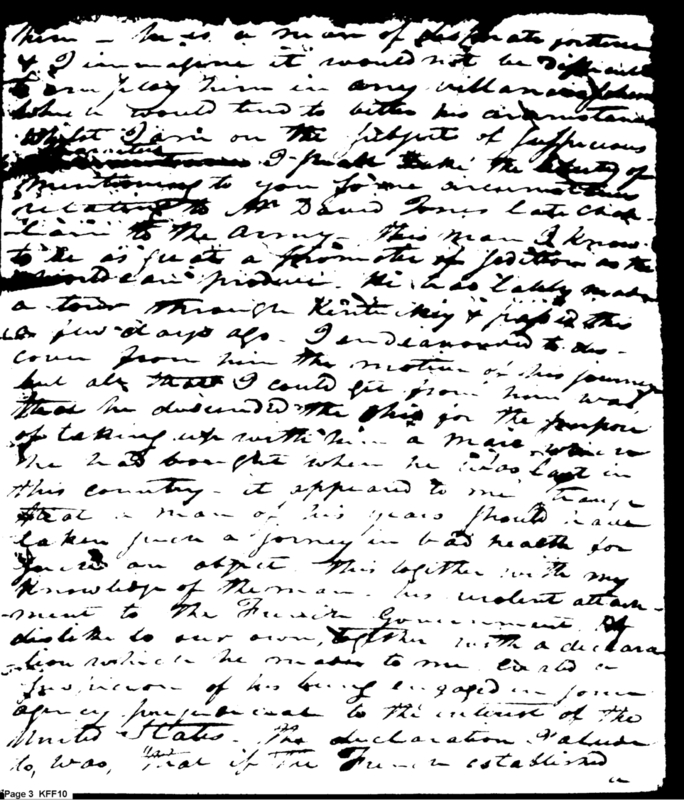 him – he is a man of desperate fortune
& I immagine it would not be difficult
to employ him in any villanous
which would tend to better his circumstan
whilst I am on the subject of suspicious
I shall take the liberty of
mentioning to you some circumstances
relating to Mr David Jones late Chap-
lain to the Army – this man I know
to be as great a promoter of sedition as the
world can produce. He has lately made
a tour through Kentucky & passed this
a few days ago – I endeavoured to dis-
cover from him the motive of his journey
but all that I could get from him was
that he descended the Ohio for the purpose
of taking up with him a mare which
he had bought when he was last in
this country – it appeared to me strange
that a man of his years should have
taken such a journey in bad health for
such an object. This together with my
knowledge of the man – his violent attach-
ment to the French Government, &
dislike to our own, together with a declara
-tion which he made to me created a
suspicion of his being engaged in some
agency prejudicial to the interest of the
United States. The declaration I allude
to, was, "that if the French established
a
Page 3 KFF10